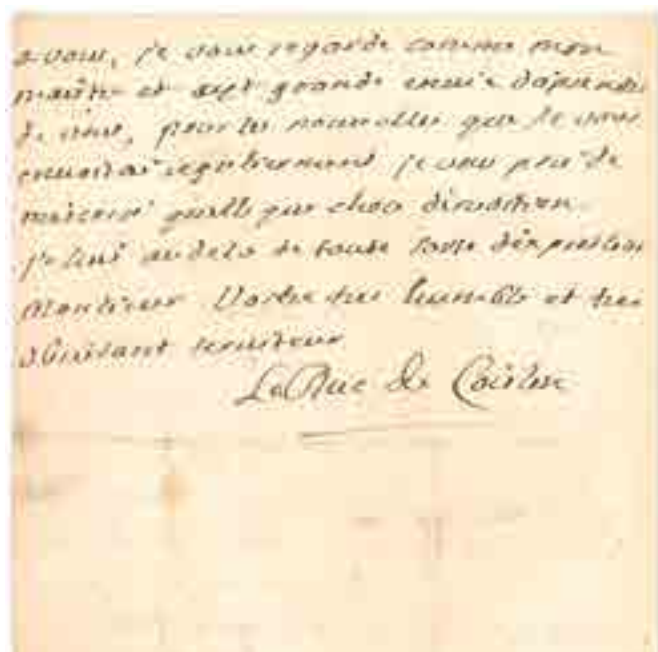 a vous, je vous regarde comme mon
maitre et ayt grande envie daprendre
de vous, pour les nouvelles que je vous
regulierement je vous prie de
quelle que chose
je suis au dela de toute sorte dexpression
Monsieur Vostre tres humble et tres
obeissant serviteur
Le Duc de Coislin